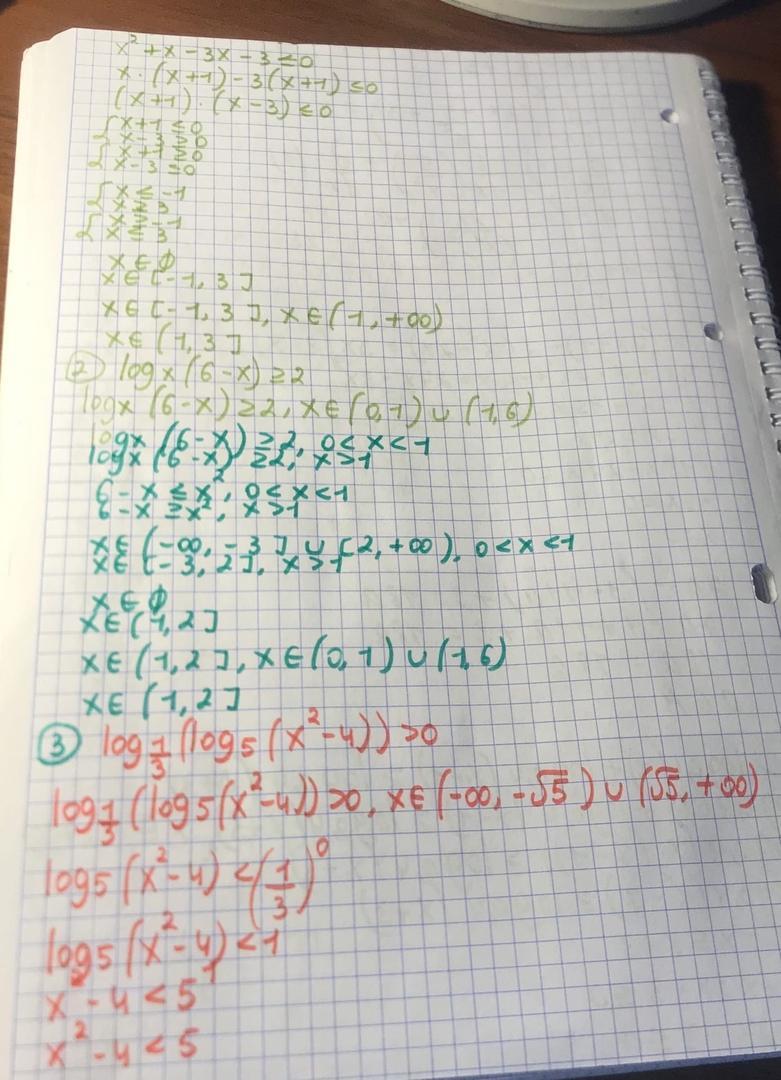 x² + x - 3x - 3 ≤ 0
x · (x+1) - 3(x+1) ≤ 0
(x+1) · (x-3) ≤ 0
{ x+1 ≤ 0
x - 3 ≥ 0
{ x+1 ≥ 0
x - 3 ≤ 0
{ x ≤ -1
x ≥ 3
{ x ≥ -1
x ≤ 3
x ∈ ϕ
x ∈ [-1, 3]
x ∈ [-1, 3], x ∈ (1, +∞)
x ∈ (1, 3]
② logx (6-x) ≥ 2
logx (6-x) ≥ 2, x ∈ (0, 1) ∪ (1, 6)
logx (6-x) ≥ 2, 0 < x < 1
logx (6-x) ≥ 2, x > 1
6 - x ≤ x², 0 < x < 1
6 - x ≥ x², x > 1
x ∈ (-∞, -3] ∪ [2, +∞), 0 < x < 1
x ∈ [-3, 2], x > 1
x ∈ ϕ
x ∈ (1, 2]
x ∈ (1, 2], x ∈ (0, 1) ∪ (1, 6)
x ∈ (1, 2]
③ log 1/3 (log5 (x² - 4)) > 0
log 1/3 (log5 (x² - 4)) > 0, x ∈ (-∞, -√5) ∪ (√5, +∞)
log5 (x² - 4) < (1/3)⁰
log5 (x² - 4) < 1
x² - 4 < 5¹
x² - 4 < 5